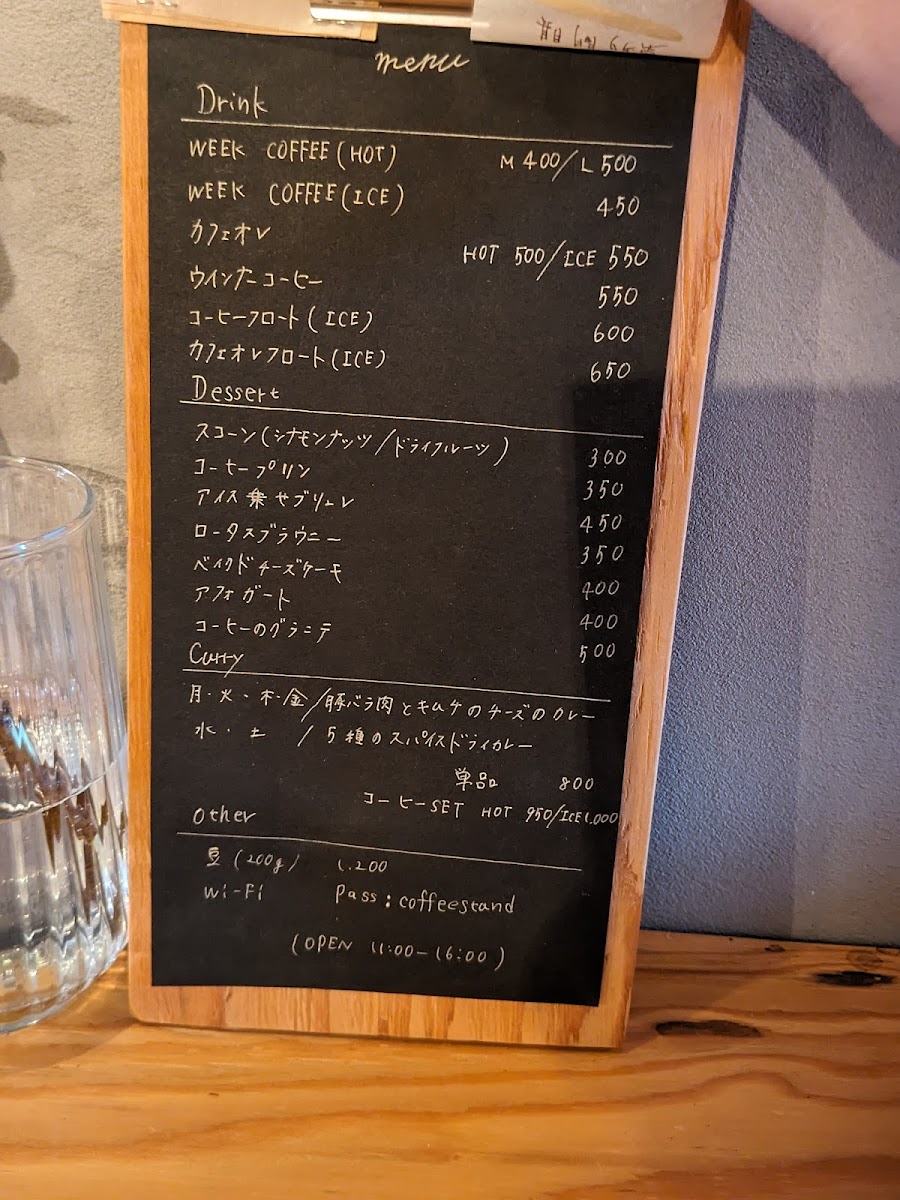 menu
Drink
WEEK COFFEE (HOT) M 400/L 500
WEEK COFFEE (ICE) 450
カフェオレ HOT 500/ICE 550
ウインナーコーヒー 550
コーヒーフロート (ICE) 600
カフェオレフロート (ICE) 650
Dessert
スコーン (シナモンナッツ/ドライフルーツ) 300
コーヒープリン 350
アイス乗せブリュレ 450
ロータスブラウニー 350
ベイクドチーズケーキ 400
アフォガート 400
コーヒーのグラニテ 500
Curry
月・火・木・金/豚バラ肉とキムチのチーズのカレー
水・土 / 5種のスパイスドライカレー
単品 800
コーヒーSET HOT 950/ICE 1.000
Other
豆 (200g) 1.200
Wi-Fi Pass: coffeestand
(OPEN 11:00-16:00)